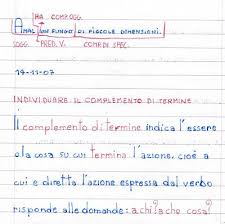 HA COMP. OGG.
ANAL UN FUNGO DI PICCOLE DIMENSIONI.
SOGG. PRED. V. COMP. DI SPEC.
14-11-07
INDIVIDUARE IL COMPLEMENTO DI TERMINE
Il complemento di termine indica l'essere
o la cosa su cui termina l'azione, cioè a
cui è diretta l'azione espressa dal verbo
risponde alle domande: a chi? a che cosa?